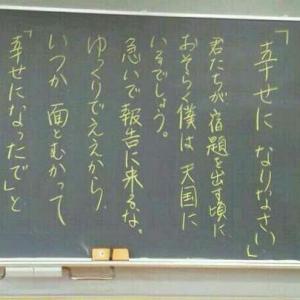 「幸せに なりなさい」
君たちが、宿題を出す頃に、
おそらく僕は 天国に
いるでしょう。
急いで報告に来るな。
ゆっくりでええから、
いつか 面とむかって
「幸せになったで」と